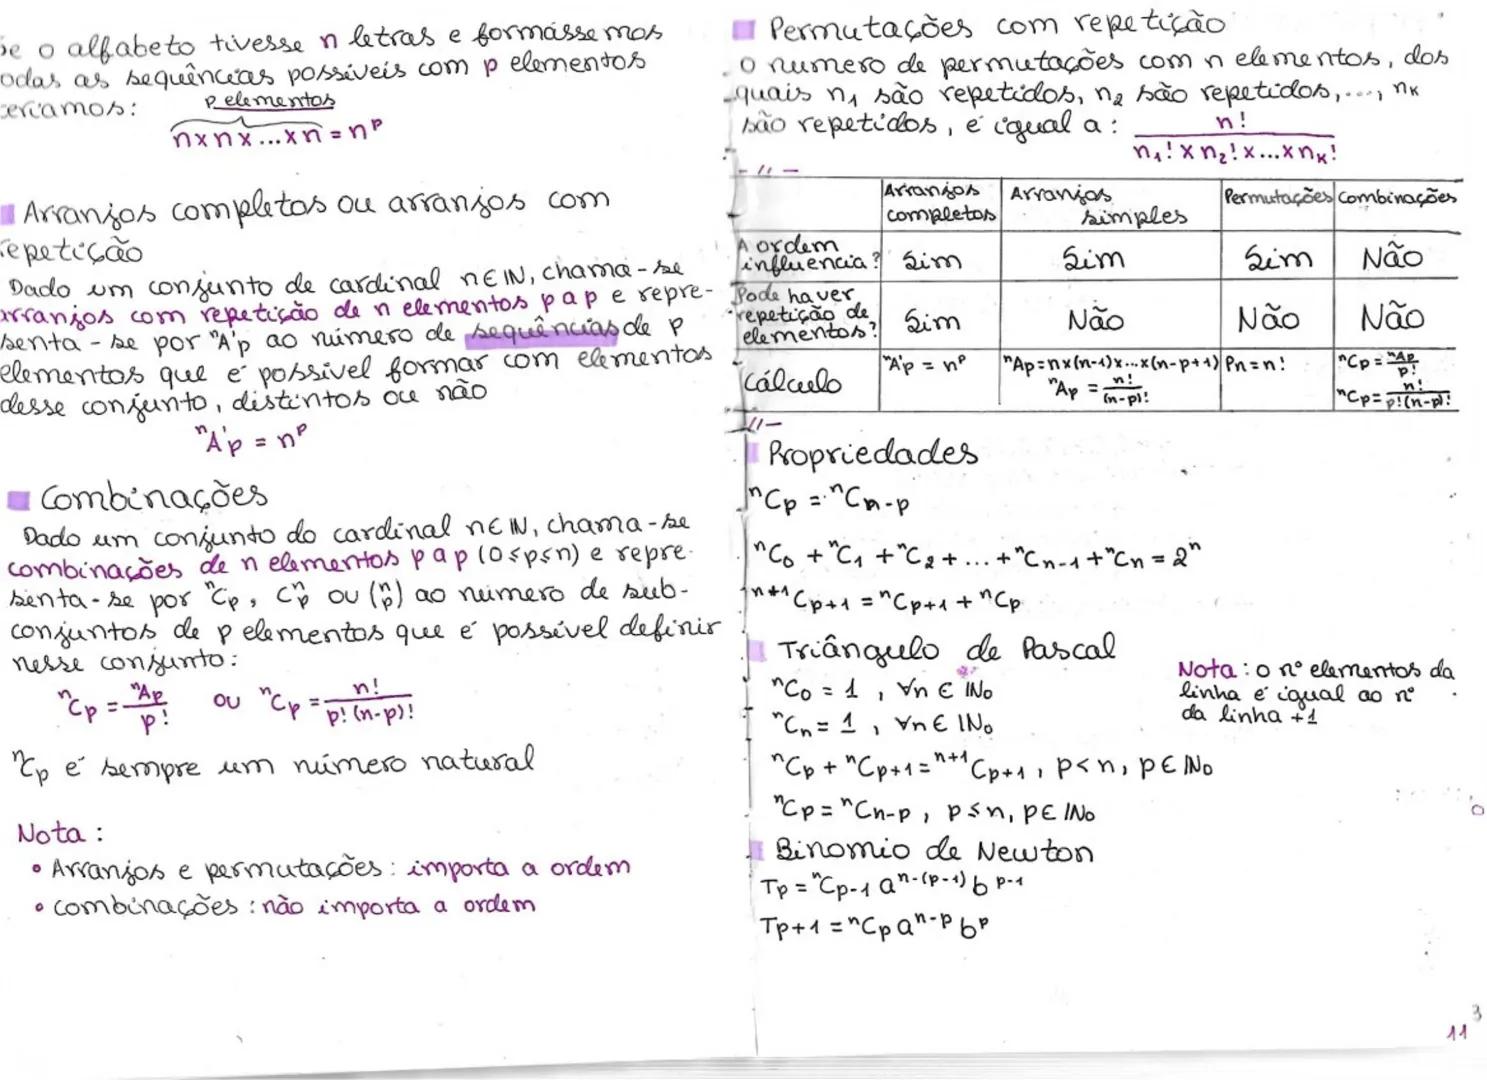 se o alfabeto tivesse n letras e formássemos
odas as sequências possíveis com p elementos
eríamos:
p elementos
n x n x ... x n = nᵖ
Arranjos completos ou arranjos com
repetição
Dado um conjunto de cardinal n ∈ IN, chama-se
arranjos com repetição de n elementos p a p e repre-
senta-se por ⁿA'p ao número de sequências de p
elementos que é possível formar com elementos
desse conjunto, distintos ou não
ⁿA'p = nᵖ
Combinações
Dado um conjunto do cardinal n ∈ IN, chama-se
combinações de n elementos p a p (0≤p≤n) e repre-
senta-se por ⁿCp, Cⁿp ou (ⁿp) ao número de sub-
conjuntos de p elementos que é possível definir
nesse conjunto:
ⁿCp = ⁿAp / p! ou ⁿCp = n! / p!(n-p)!
ⁿCp é sempre um número natural
Nota:
• Arranjos e permutações: importa a ordem
• combinações: não importa a ordem
Permutações com repetição
o numero de permutações com n elementos, dos
quais n₁ são repetidos, n₂ são repetidos, ..., nₖ
são repetidos, é igual a: n! / n₁! x n₂! x ... x nₖ!
- 11 -
Arranjos completos | Arranjos simples | Permutações | Combinações
A ordem influencia? | Sim | Sim | Sim | Não
Pode haver repetição de elementos? | Sim | Não | Não | Não
Cálculo | ⁿA'p = nᵖ | ⁿAp = n x (n-1) x ... x (n-p+1) ⁿAp = n! / (n-p)! | Pn = n! | ⁿCp = ⁿAp / p! ⁿCp = n! / p!(n-p)!
11 -
Propriedades
ⁿCp = ⁿCn-p
ⁿC₀ + ⁿC₁ + ⁿC₂ + ... + ⁿCn-1 + ⁿCn = 2ⁿ
ⁿ⁺¹Cp+1 = ⁿCp+1 + ⁿCp
Triângulo de Pascal
ⁿC₀ = 1, ∀n ∈ IN₀
ⁿCn = 1, ∀n ∈ IN₀
ⁿCp + ⁿCp+1 = ⁿ⁺¹Cp+1, p<n, p ∈ IN₀
ⁿCp = ⁿCn-p, p≤n, p ∈ IN₀
Nota: o nº elementos da
linha é igual ao nº
da linha +1
Binomio de Newton
Tp = ⁿCp-1 aⁿ⁻⁽ᵖ⁻¹⁾ b ᵖ⁻¹
Tp+1 = ⁿCp aⁿ⁻ᵖ bᵖ
3
11